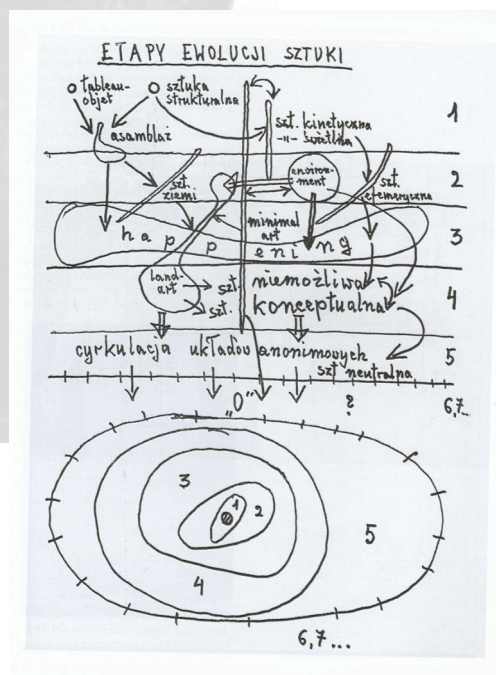 ETAPY EWOLUCJI SZTUKI
tableau-
objet
sztuka
strukturalna
1
asamblaż
szt. kinetyczna
-"- świetlna
2
szt.
ziemi
environ-
ment
szt.
efemeryczna
3
happening
minimal
art
land-
art
szt.
szt.
niemożliwa
konceptualna
4
cyrkulacja układów anonimowych
5
szt neutralna
"0"
?
6,7..
1
2
3
4
5
6,7...